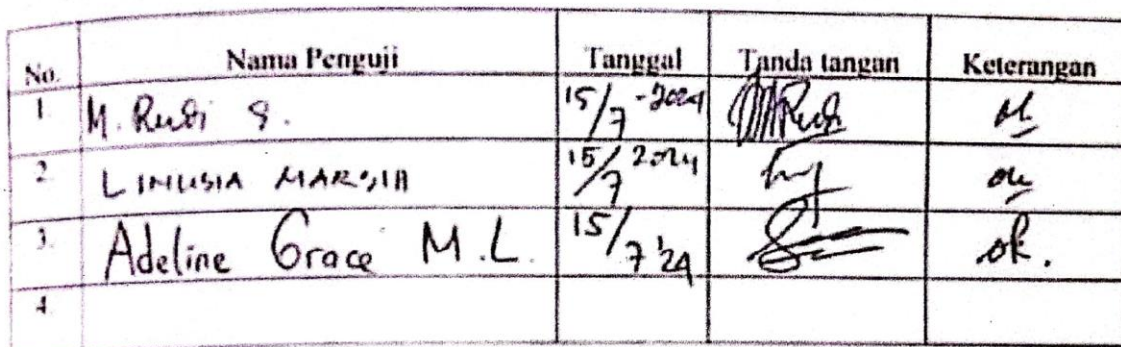 No. Nama Penguji Tanggal Tanda tangan Keterangan
1. M. Rudi S. 15/7-2024 ok
2. LINUSIA MARSIA 15/7 2024 ok
3. Adeline Grace M.L. 15/7 '24 ok.
4.